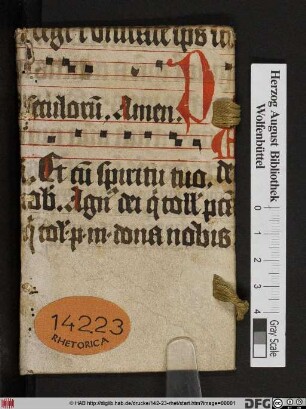 seculorū. Amen. P
. Et cū spiritu tuo. de
ab. Agn⁹ dei q̄ toll. pcā
q̄ tol. p. m. dona nobis
14223
RHETORICA
Herzog August Bibliothek
Wolfenbüttel
0 1 2 3 4
Gray Scale
© HAB http://diglib.hab.de/drucke/142-23-rhet/start.htm?image=00001
DFG